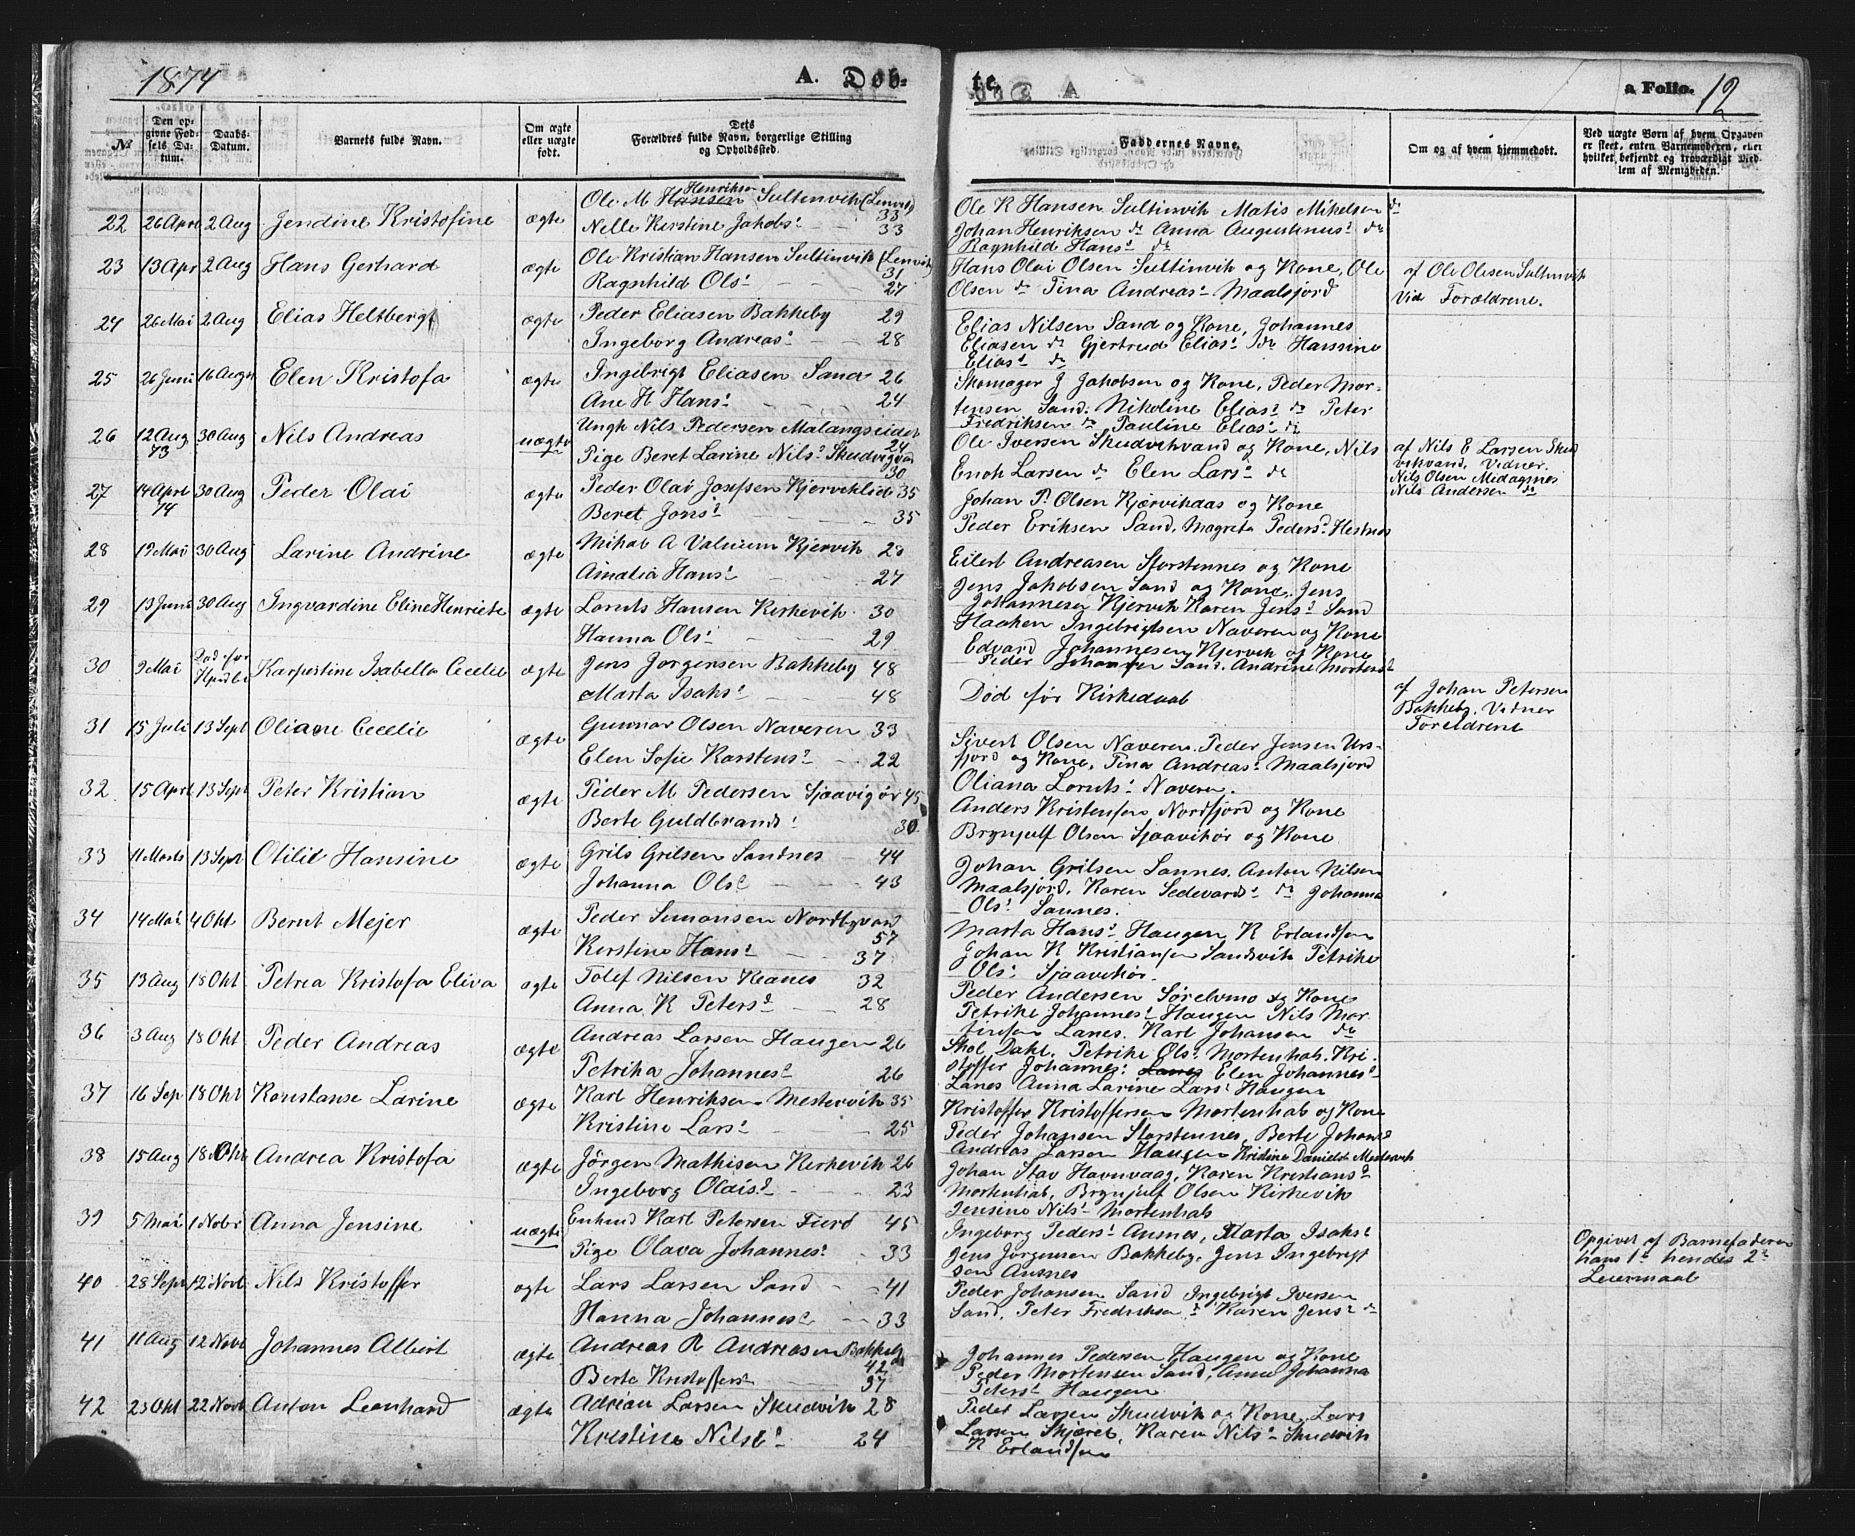 1874
A. Døb-
№
Den op-
givne Fød-
sels Da-
tum.
Daabs-
Datum.
Barnets fulde Navn.
Om ægte
eller uægte
født.
Dets
Forældres fulde Navn, borgerlige Stilling
og Opholdssted.
22 26 Apr 2 Aug Jendine Kristofine ægte Ole M Hansen Henriksen Sultinvik (Lenvik) 33
Nelle Kerstine Jakobs 33
23 13 Apr 2 Aug Hans Gerhard ægte Ole Kristian Hansen Sultinvik (Lenvik) 31
Ragnhild Ols 27
24 26 Mai 2 Aug Elias Heltberg ægte Peder Eliasen Bakkeby 29
Ingeborg Andreas 28
25 26 Juni 16 Augu Elen Kristofa ægte Ingebrigt Eliasen Sand 26
Ane H Hans 24
26 12 Aug 73 30 Aug Nils Andreas uægte Ungk Nils Pedersen Malangseidet 24
Pige Beret Larine Nils Skudvigvan 30
27 14 Aprl 74 30 Aug Peder Olai ægte Peder Olai Josefsen Kjerveklid 35
Beret Jons 35
28 19 Mai 30 Aug Larine Andrine ægte Mikal A Valnum Kjervik 28
Amalia Hans 27
29 13 Juni 30 Aug Ingvardine Eline Henriete ægte Lornts Hansen Kirkevik 30
Hanna Ols 29
30 9 Mai Død før Karpestine Isabella Cecelie ægte Jens Jørgensen Bakkeby 48
Marta Isaks 48
31 15 Juli 13 Sept Oliane Cecelie ægte Gunnar Olsen Naveren 33
Elen Sofie Karstens 22
32 15 April 13 Sept Peter Kristian ægte Peder M Pedersen Sjaavigør 45
Berte Guldbrands 30
33 11 Marts 13 Sept Otilie Hansine ægte Grils Grilsen Sandnes 44
Johanna Ols 43
34 14 Mai 4 Okt Bernt Mejer ægte Peder Simonsen Nordbyvand 57
Kerstine Hans 37
35 13 Aug 18 Okt Petrea Kristofa Eliva ægte Tolef Nilsen Keanes 32
Anna K Peters 28
36 3 Aug 18 Okt Peder Andreas ægte Andreas Larsen Haugen 26
Petrika Johannes 26
37 16 Sep 18 Okt Konstanse Larine ægte Karl Henriksen Mestervik 35
Kristine Lars 25
38 15 Aug 18 Okt Andrea Kristofa ægte Jörgen Mathisen Kirkevik 26
Ingeborg Olais 23
39 5 Mai 1 Nobr Anna Jensine uægte Enkmd Karl Petersen Fierd 45
Pige Olava Johannes 33
40 28 Sept 12 Novb Nils Kristoffer ægte Lars Larsen Sand 41
Hanna Johannes 33
41 11 Aug 12 Novb Johannes Albert ægte Andreas R Andreasen Bakkeby 42
Berte Kristoffers 37
42 23 Okt 22 Novb Anton Leonhard ægte Adrian Larsen Skudvik 28
Kristine Nils 24
te.
a Folio. 12
Faddernes Navne.
Om og af hvem hjemmedøbt.
Ved uægte Børn af hvem Opgaven
er skeet, enten Barnemoderen, eller
hvilket bekjendt og troværdigt Med-
lem af Menigheden.
Ole K Hansen Sultinvik Matis Mikelsen do
Johan Henriksen do Anna Augustinus do
Ragnhild Hans do
Hans Olai Olsen Sultinvik og Kone, Ole
Olsen do Tina Andreas Maalsjord
af Ole Olesen Sultinvik
Vid Forældrene.
Elias Nilsen Sand og Kone, Johannes
Eliasen do Gjertrud Elias do Hansine
Elias do
Skomager J Jakobsen og Kone, Peder Mor-
tensen Sand. Nikoline Elias do Peter
Fredriksen do Pauline Elias do
Ole Iversen Skudvikvand og Kone, Nils
Enok Larsen do Elen Lars do
af Nils E Larsen Skud
vikvand, Vidner.
Nils Olsen Medagnes
Nils Andersen do
Johan P. Olsen Kjærvikdas og Kone
Peder Eriksen Sand, Magreta Peders Hestnes
Eilert Andreasen Storstennes og Kone
Jens Jakobsen Sand og Kone. Jens
Johannesen Kjervik Karen Jens Sand
Haaken Ingebrigtsen Naveren og Kone
Edvard Johannesen Kjervik og Kone
Peder Johansen Sand. Andrine Mortens
Død før Kirkedaab
af Johan Petersen
Bakkeby. Vidner
Foreldrene
Sivert Olsen Naveren. Peder Jensen Urs-
fjord og Kone, Tina Andreas Maalsjord
Oliana Lornts Naveren.
Anders Kristensen Nordfjord og Kone
Brynjulf Olsen Sjaavikør og Kone
Johan Grilsen Sannes. Anton Nilsen
Maalsjord. Karen Sedevards do Johanna
Ols Sannes.
Marta Hans Haugen K Erlandsen
Johan K Kristiansen Sandvik Petrike
Ols Sjaavikør.
Peder Andersen Sørelvmo og Kone
Petrike Johannes Haugen Nils Mor
tinsen Lanes. Karl Johansen do
Skol. Dahl. Petrike Ols Mortenhals. Kri-
stoffer Johannes Lanes Elen Johannes
Lanes Anna Larine Lars Haugen
Kristoffer Kristoffersen Mortenhab og Kone
Peder Johansen Storstennes, Berte Johans
Andreas Larsen Haugen Kristine Daniels Mestervik
Johan Stav Havnvaag, Karen Kristians
Mortenhab, Brynjulf Olsen Kirkevik
Jensine Nils Mortenhals
Ingeborg Peders Ansnes, Marta Isaks
Jens Jørgensen Bakkeby, Jens Ingebrigt
sen Ansnes
Opgivet af Barnefaderen
hans 1ste hendes 2det
Leiermaal
Peder Johansen Sand Ingebrigt Iversen
Sand. Peter Fredriksen do Karen Jens do
Johannes Pedersen Haugen og Kone
Peder Mortensen Sand, Anne Johanna
Peters Haugen
Peder Larsen Skudvik og Kone, Lars
Larsen Skjæret, Karen Nils Skudvik
K Erlandsen